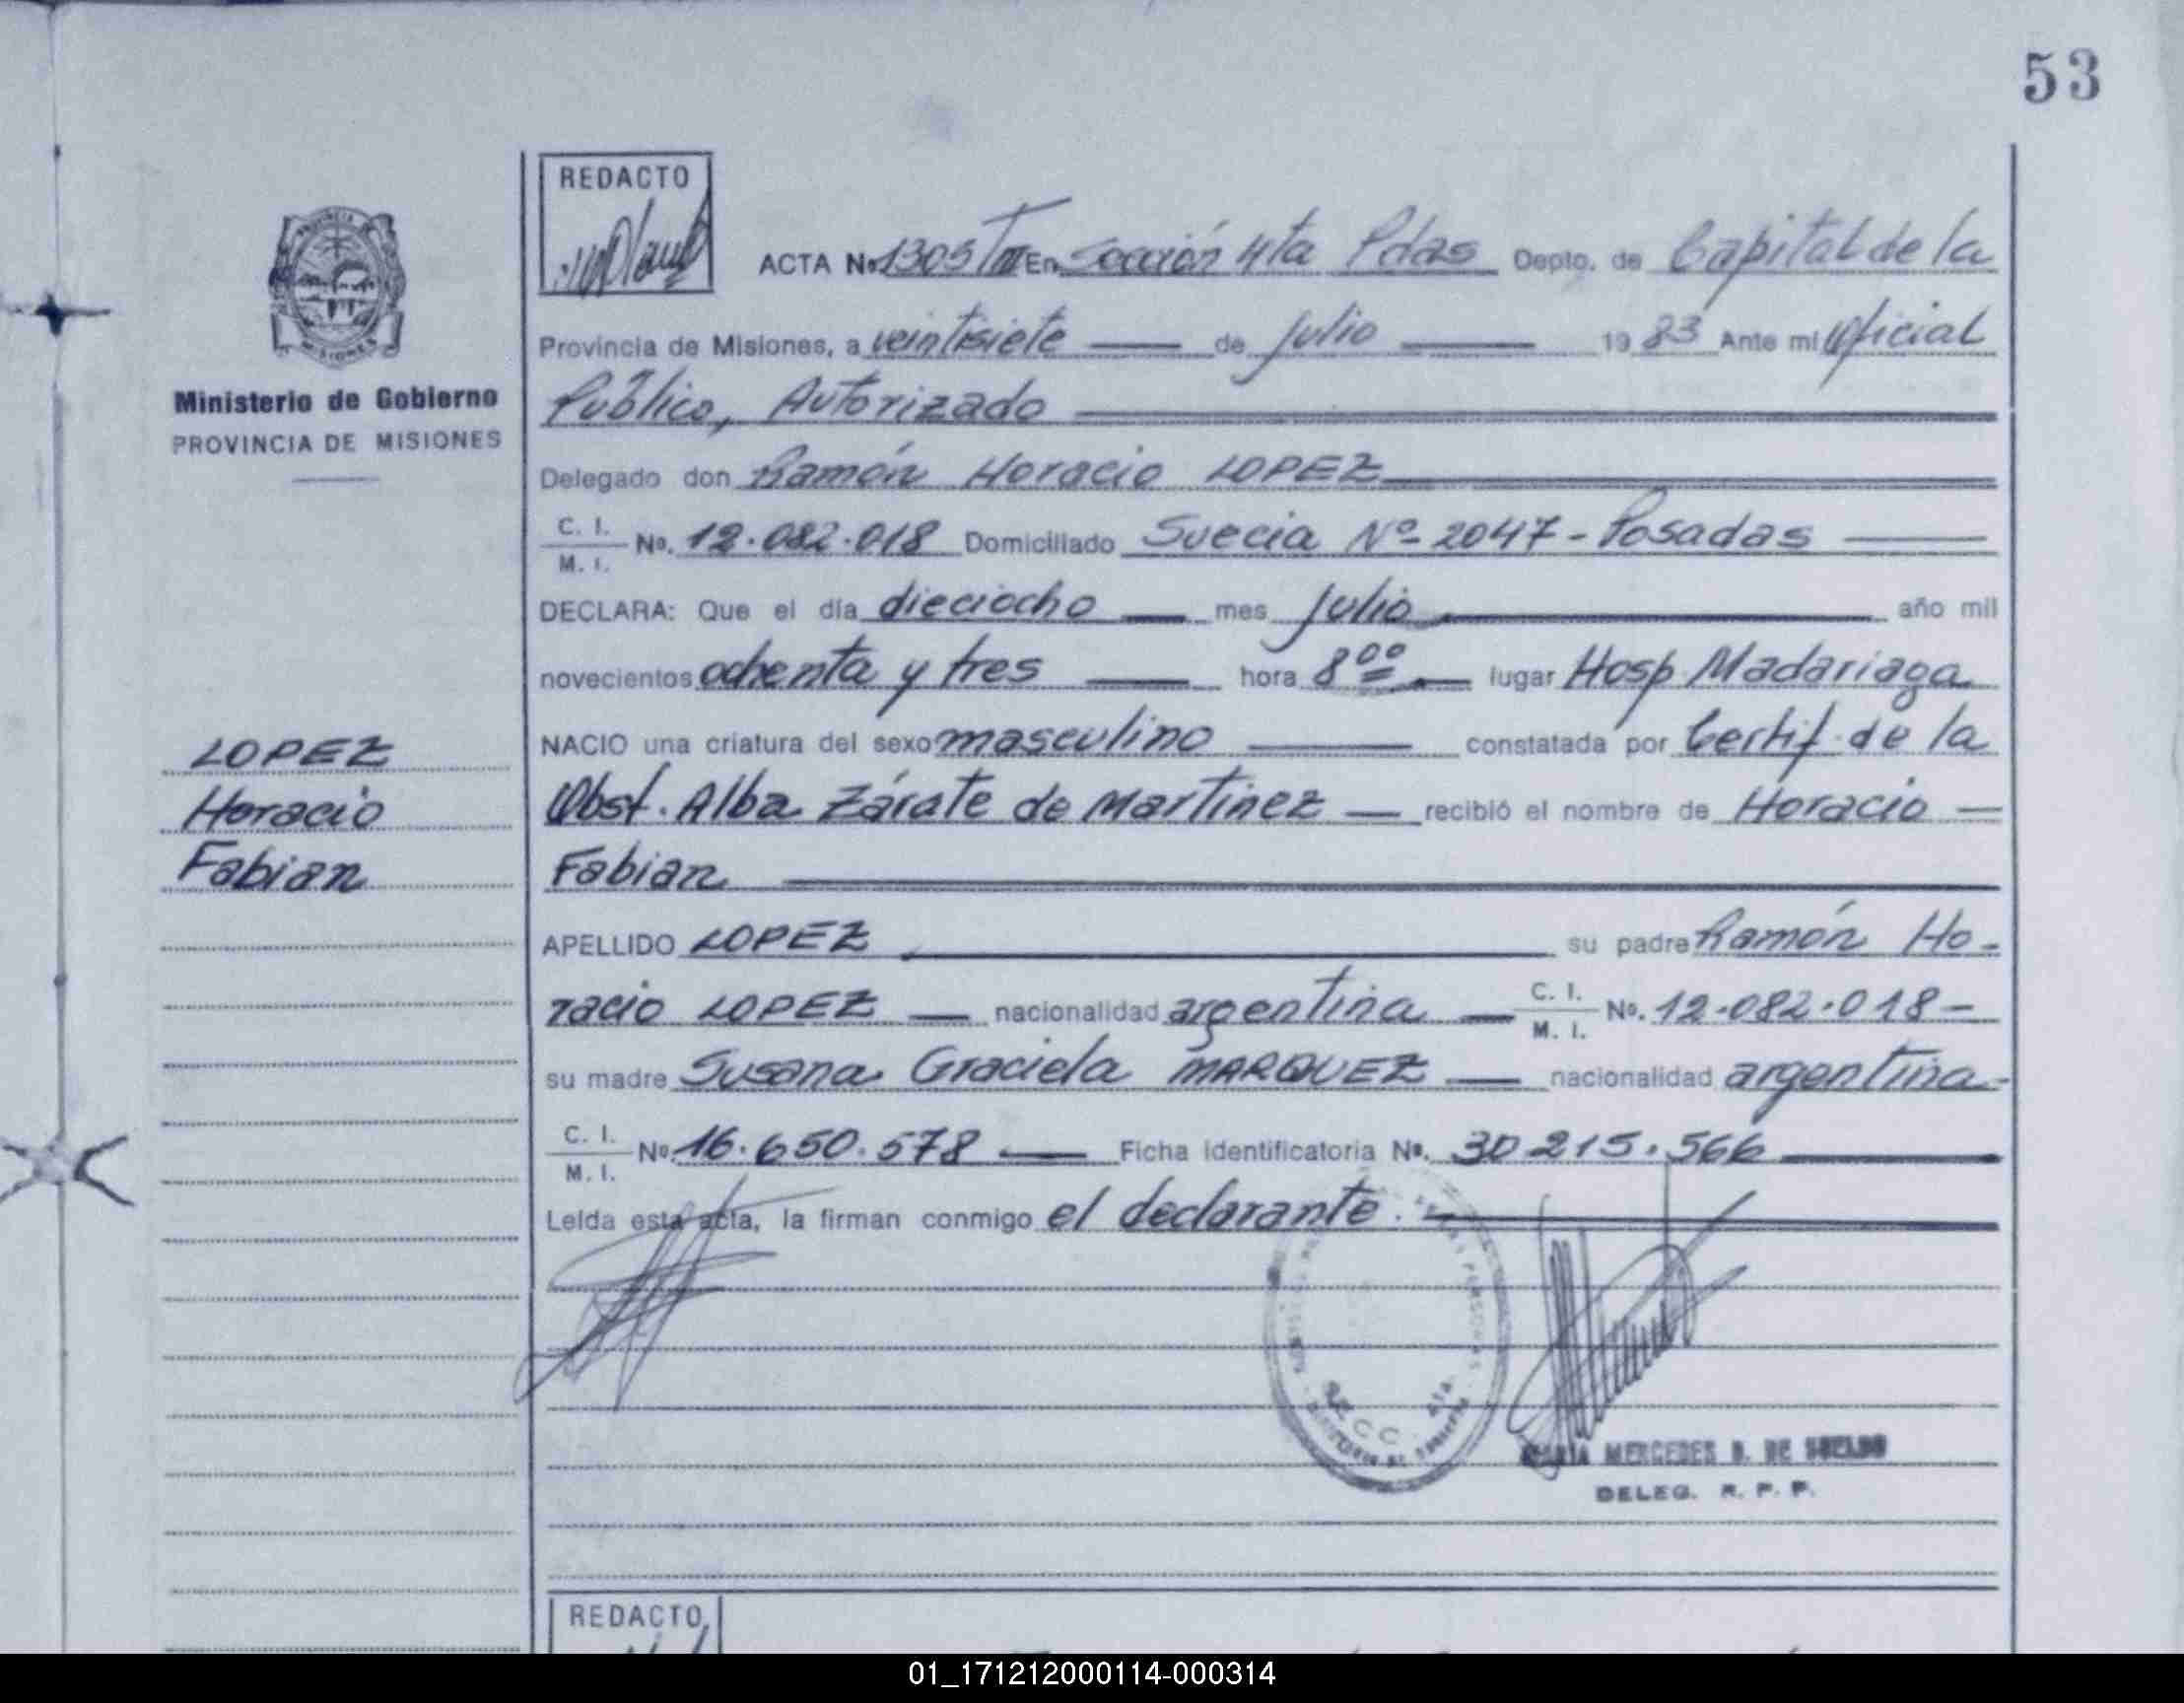 53
REDACTO
ACTA No. 1305/III En Sección 4ta Pdas Depto. de Capital de la
Provincia de Misiones, a veintisiete de Julio 1983 Ante mi Oficial
Público, Autorizado
Delegado don Ramón Horacio LOPEZ
C. I. / M. I. No. 12.082.018 Domiciliado Suecia Nº 2047 - Posadas
DECLARA: Que el día dieciocho mes Julio año mil
novecientos ochenta y tres hora 8 00 lugar Hosp Madariaga
NACIO una criatura del sexo masculino constatada por Certif. de la
Obst. Alba Zárate de Martinez recibió el nombre de Horacio
Fabian
APELLIDO LOPEZ su padre Ramón Ho-
racio LOPEZ nacionalidad argentina C. I. / M. I. No. 12.082.018 -
su madre Susana Graciela MARQUEZ nacionalidad argentina -
C. I. / M. I. No. 16.650.578 Ficha identificatoria No. 30.215.566
Leída esta acta, la firman conmigo el declarante.
PROVINCIA
MISIONES
Ministerio de Gobierno
PROVINCIA DE MISIONES
LOPEZ
Horacio
Fabian
SECC 4ta
MERCEDES B. DE SUELDO
DELEG. R. P. P.
REDACTO
01_171212000114-000314